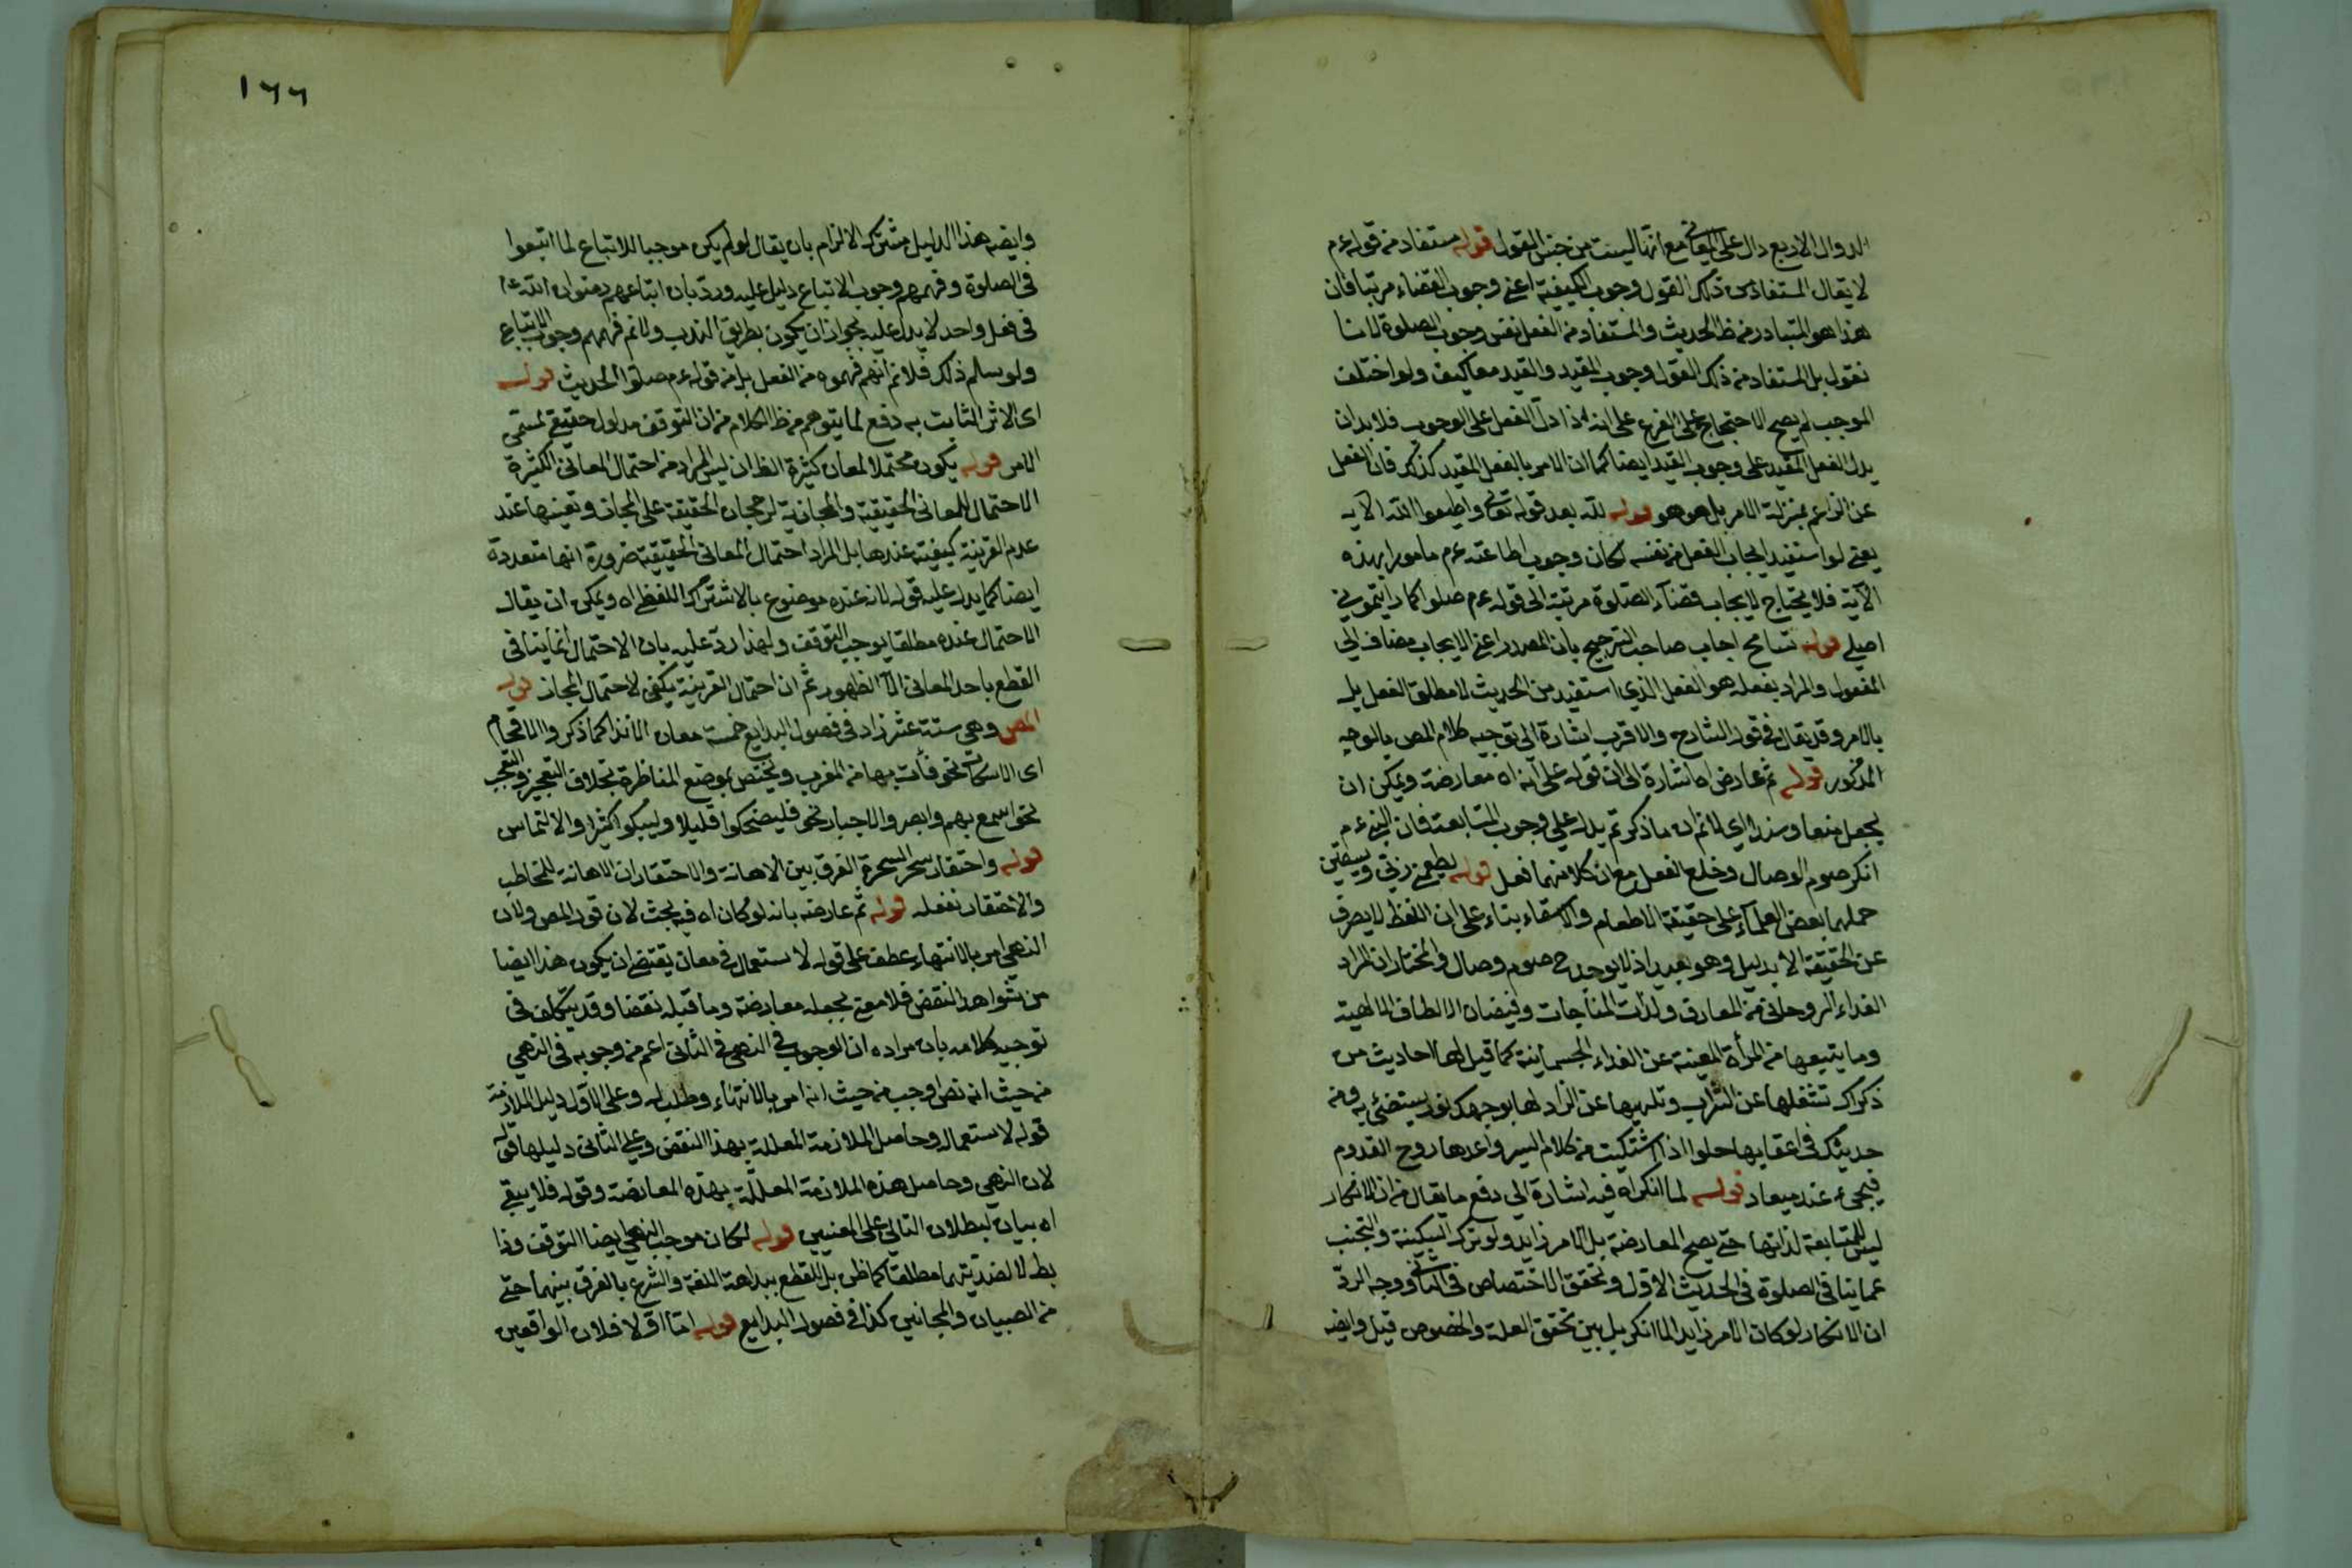 الدوال الاربع دال على المعاني مع انها ليست من جنس القول قوله مستفاد من قوله عم
لا يقال المستفاد من ذلك القول وجوب الكيفية اعني وجوب القضاء مرتبا فان
هذا هو المتبادر من ظ الحديث والمستفاد من الفعل نفس وجوب الصلوة لانا
نقول بل المستفاد من ذلك القول وجوب المقيد والقيد معا كيف ولو اختلف
الموجب لم يصح الاحتجاج على الفرع على انه اذا دل الفعل على الوجوب فلا بد ان
يدل الفعل المقيد على وجوب القيد ايضا كما ان الامر بالفعل المقيد كذلك فان الفعل
عن الزاعم بمنزلة الامر بل هو هو قوله لله بعد قوله تعالى واطيعوا الله الآية
يعني لو استفيد ايجاب الفعل من نفسه لكان وجوب اطاعته عم مامورا بهذه
الآية فلا يحتاج لايجاب قضاء الصلوة مرتبة الى قوله عم صلوا كما رايتموني
اصلي قوله تسامح اجاب صاحب الترجيح بان المصدر اعني الايجاب مضاف الى
المفعول والمراد بفعله هو الفعل الذي استفيد من الحديث لا مطلق الفعل بل
بالامر وقد يقال في قول الشارح والاقرب اشارة الى توجيه كلام المص بالوجه
المذكور قوله ثم عارض اه اشارة الى ان قوله على انه اه معارضة ويمكن ان
يجعل منعا وسندا اي لا نم ان ما ذكرتم يدل على وجوب المتابعة فان النبي عم
انكر صوم الوصال وخلع النعل مع ان كلا منهما فعل قوله يطعمني ربي ويسقيني
حملهما بعض العلماء على حقيقة الاطعام والاسقاء بناء على ان اللفظ لا يصرف
عن الحقيقة الا بدليل وهو بعيد اذ لا يوجد ح صوم وصال والمختار ان المراد
الغداء الروحاني من المعارف ولذات المناجات وفيضان الالطاف الالهية
وما يتبعها من المرأة المغنية عن الغداء الجسمانية كما قيل لها احاديث من
ذكراك تشغلها عن الشراب وتلهيها عن الزاد لها بوجهك نور يستضئ به ومن
حديثك في اعقابها حلوا اذا اشتكيت من كلام السير واعدها روح القدوم
فيجئ عند ميعاد قوله لما انكر اه فيه اشارة الى دفع ما يقال من ان الانكار
ليس للمتابعة لذاتها حتى يصح المعارضة بل لامر زايد ولو ترك السكينة والتجنب
عما ينافي الصلوة في الحديث الاول وتحقق الاختصاص في الثاني ووجه الرد
ان الانكار لو كان لامر زايد لما انكر بل بين تحقق العلة والخصوص قيل وايضه
١٦٦
وايضه هذا الدليل مشترك الالزام بان يقال لو لم يكن موجبا للاتباع لما اتبعوا
في الصلوة وفهمهم وجوب الاتباع دليل عليه ورد بان اتباعهم رضوان الله عم
في فعل واحد لا يدل عليه بجواز ان يكون بطريق الندب ولا نم فهمهم وجوب الاتباع
ولو سلم ذلك فلا نم انهم فهموه من الفعل بل من قوله عم صلوا الحديث قوله
اي الاثر الثابت به دفع لما يتوهم من ظ الكلام من ان التوقف مدلول حقيقي لمسمى
الامر قوله يكون محتملا لمعان كثيرة الظ ان ليس المراد من احتمال المعاني الكثيرة
الاحتمال للمعاني الحقيقية والمجازية لرجحان الحقيقة على المجاز وتعينها عند
عدم القرينة كيفية عندها بل المراد احتمال المعاني الحقيقية ضرورة انها متعددة
ايضا كما يدل عليه قوله لانه عنده موضوع بالاشتراك اللفظي اه ويمكن ان يقال
الاحتمال عنده مطلقا يوجب التوقف ولهذا رد عليه بان الاحتمال انما ينافي
القطع باحد المعاني لا الظهور ثم ان احتمال القرينة يكفي لاحتمال المجاز قوله
المص وهي ستة عشر زاد في فصول البدايع خمسة معان الانذار كما ذكر والافحام
اي الاسكات نحو فأت بها من المغرب ويختص بموضع المناظرة بخلاف التعجيز والتعجب
نحو اسمع بهم وابصر والاخبار نحو فليضحكوا قليلا وليبكوا كثيرا والالتماس
قوله واحتقار سحر السحرة الفرق بين الاهانة والاحتقار ان الاهانة للمخاطب
والاحتقار لفعله قوله ثم عارضه بانه لو كان اه فيه بحث لان قول المص ولان
النهي امر بالانتهاء عطف على قوله لاستعمال في معان يقتضي ان يكون هذا ايضا
من شواهد النقض فلا معنى لجعله معارضة وما قبله نقضا وقد يتكلف في
توجيه كلامه بان مراده ان الوجوب في النهي في الثاني اعم من وجوبه في النهي
من حيث انه نص اوجب من حيث انه امر بالانتهاء وطلب له وعلى الاول دليل الملازمة
قوله لاستعمال وحاصل الملازمة المعللة بهذا النقض وعلى الثاني دليلها قوله
لان النهي وحاصل هذه الملازمة المعللة بهذه المعارضة وقوله فلا يبقى
اه بيان لبطلان التالي على المعنيين قوله لكان موجب النهي ايضا التوقف وذا
بط لا لضديتهما مطلقا كما ظن بل للقطع ببداهة اللغة والشرع بالفرق بينهما حتى
من الصبيان والمجانين كذا في فصول البدايع قوله اما اولا فلان الواقعين